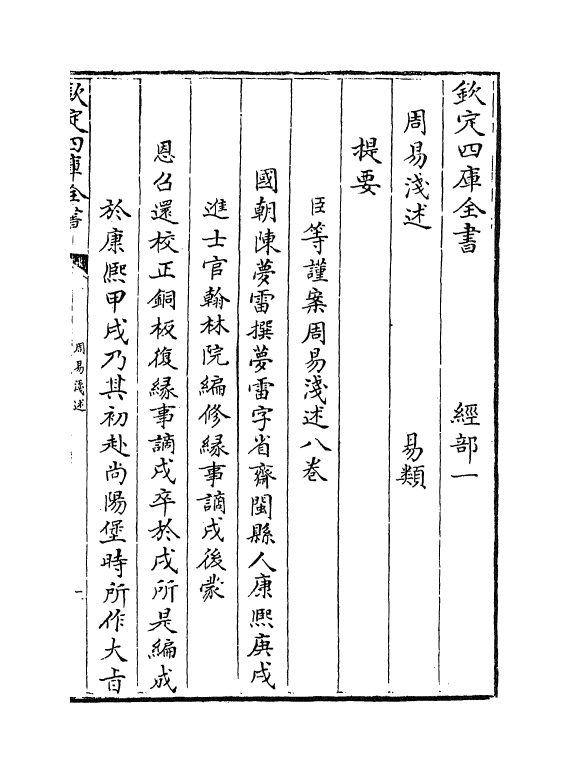 欽定四庫全書 經部一
周易淺述 易類
提要
臣等謹案周易淺述八卷
國朝陳夢雷撰夢雷字省齋閩縣人康熙庚戌
進士官翰林院編修縁事謫戍後蒙
恩召還校正銅板復縁事謫戍卒於戍所是編成
於康熙甲戌乃其初赴尚陽堡時所作大㫖
欽定四庫全書
周易淺述
一